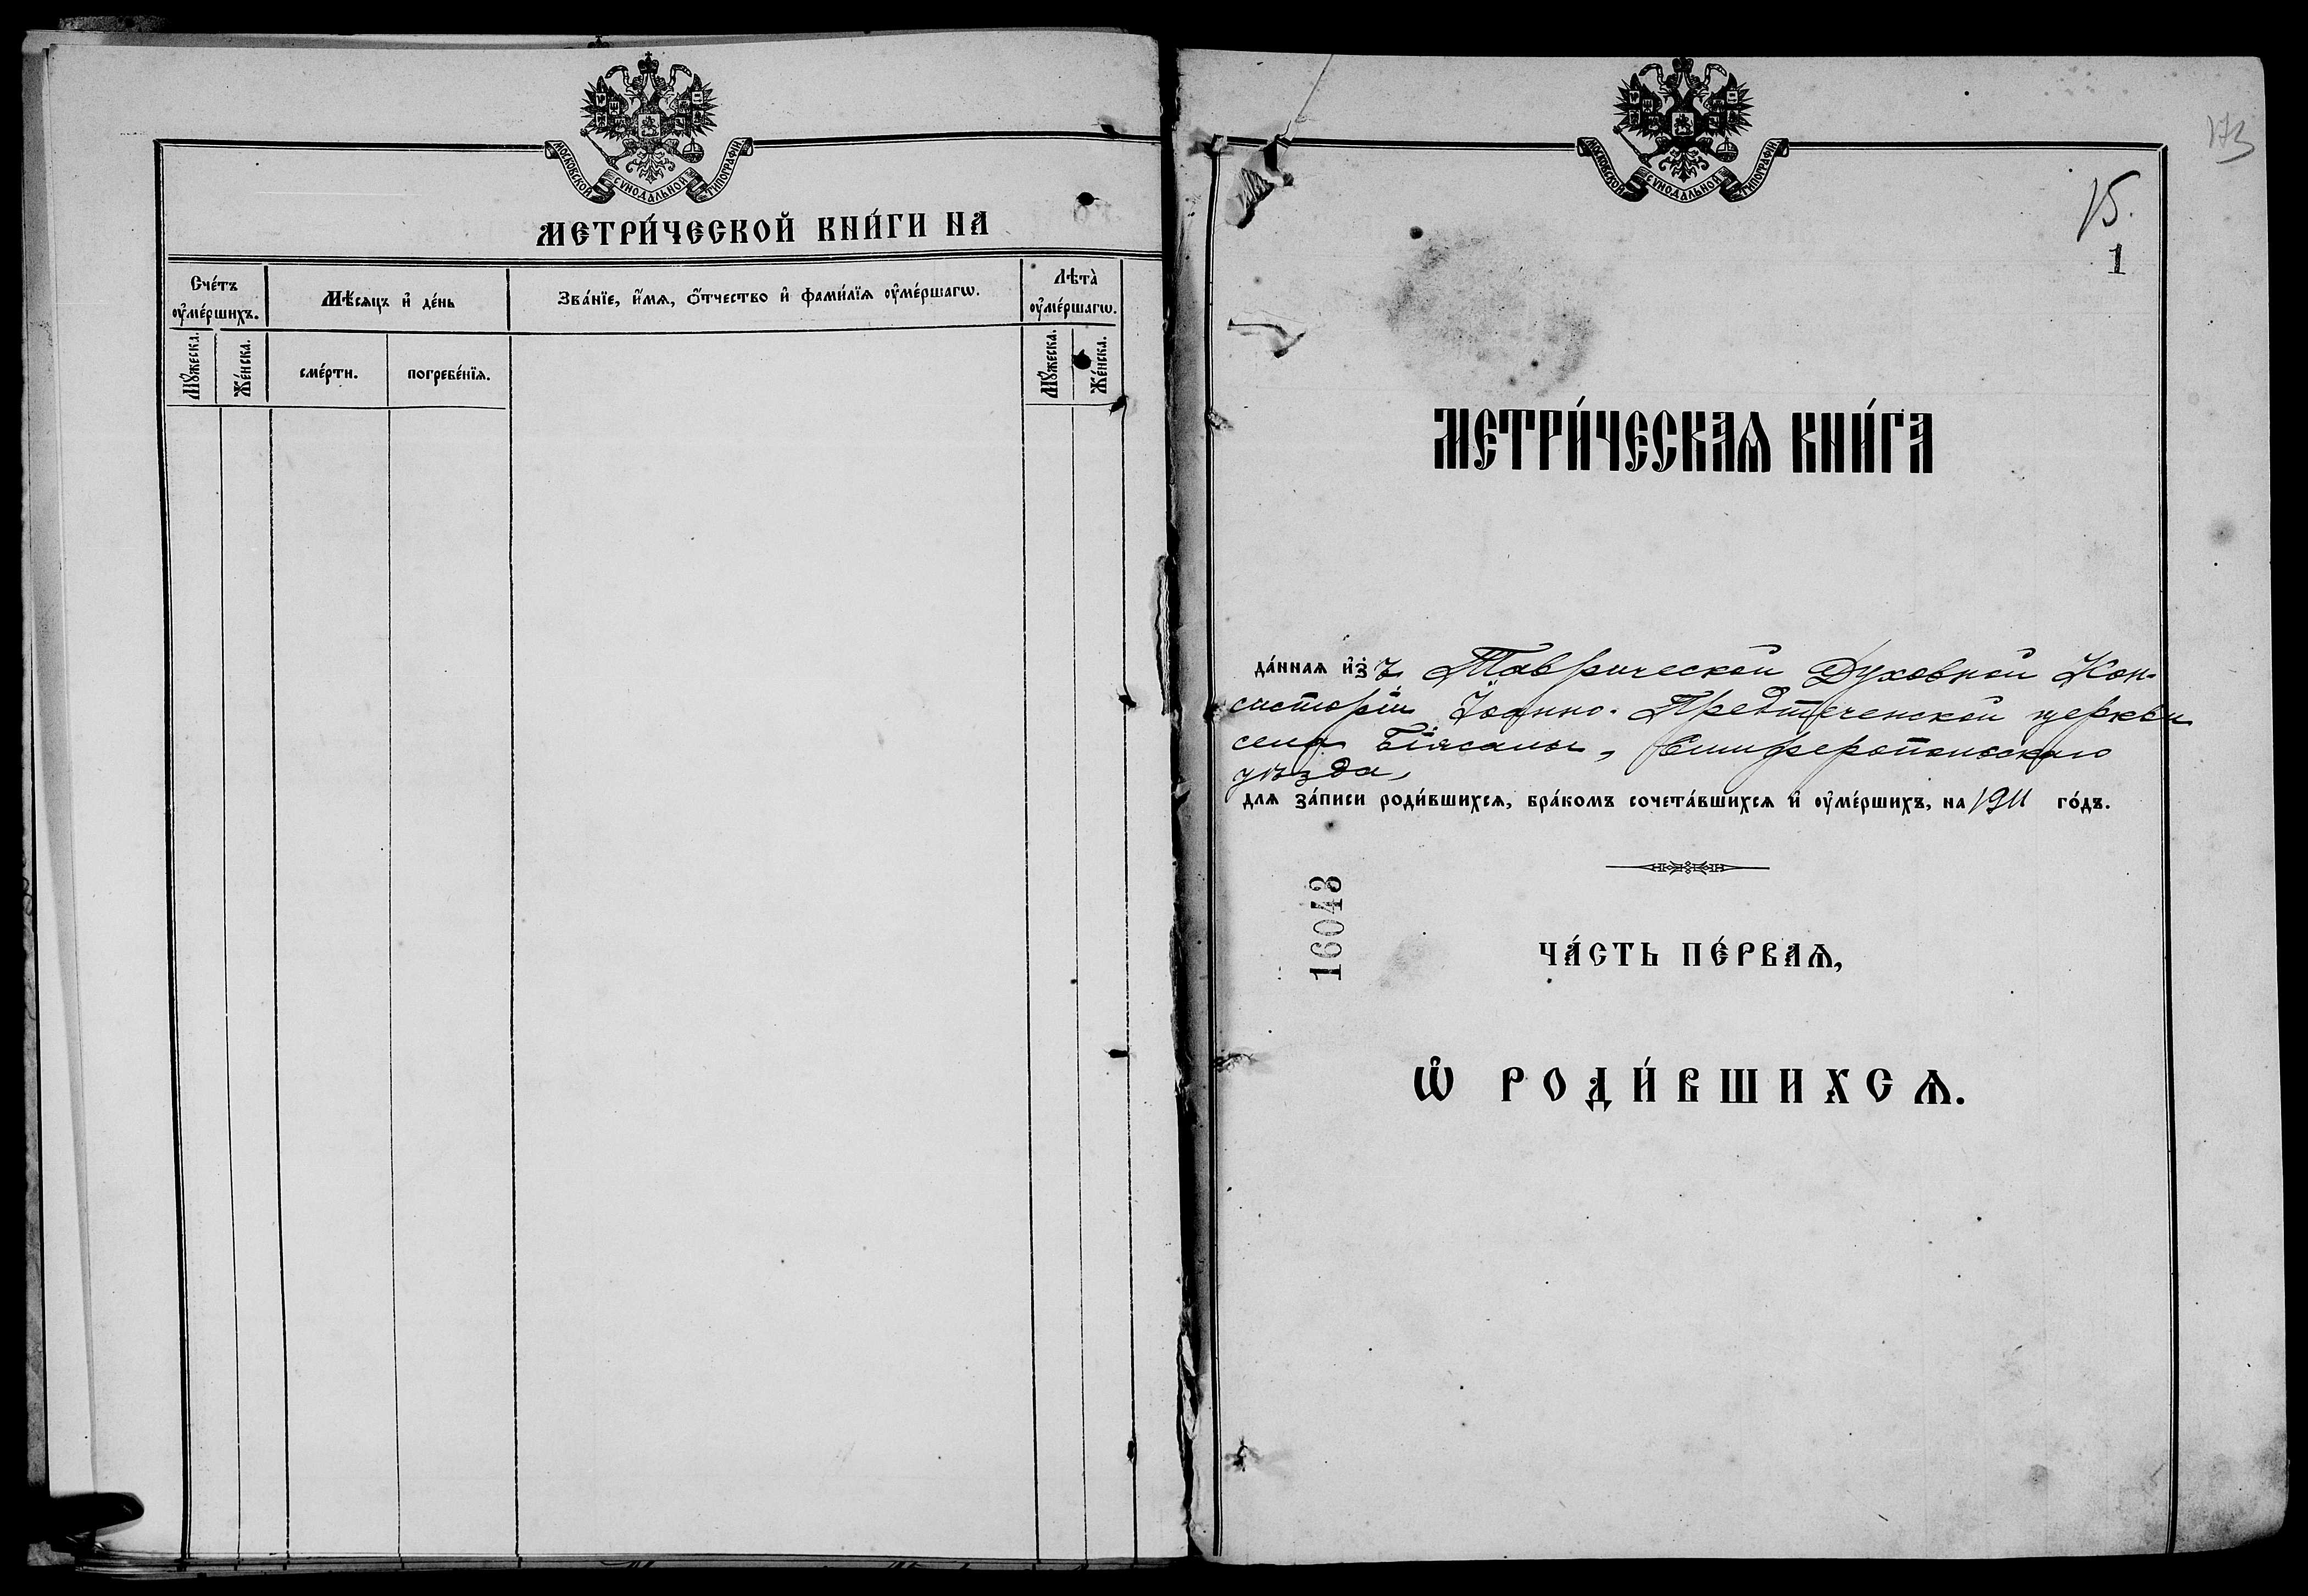 МОСКОВСКОЙ СѴНОДАЛЬНОЙ ТИПОГРАФІИ
МЕТРИ́ЧЕСКОЙ КНИ́ГИ НА
Сче́тъ ᲂу҆ме́ршихъ.
Мѣ́сяцъ и҆ де́нь
Зва́нїе, и҆́мѧ, ѻ҆́тчество и҆ фами́лїѧ ᲂу҆ме́ршагѡ.
Лѣта̀ ᲂу҆ме́ршагѡ.
Мꙋ́жеска.
Же́нска.
сме́рти.
погребе́нїѧ.
Мꙋ́жеска.
Же́нска.
МОСКОВСКОЙ СѴНОДАЛЬНОЙ ТИПОГРАФІИ
173
15.
1
МЕТРИ́ЧЕСКАѦ КНИ́ГА
да́ннаѧ и҆з̾ъ Таврической Духовной Кон-
систоріи Іоанно-Предтеченской церкви
села Біясалы, Симферопольскаго
уѣзда,
для за́писи роди́вшихсѧ, бра́комъ сочета́вшихсѧ и҆ ᲂу҆ме́ршихъ, на 1911 го́дъ.
16043
ЧА́СТЬ ПЕ́РВАѦ,
Ѡ҆ РОДИ́ВШИХСѦ.